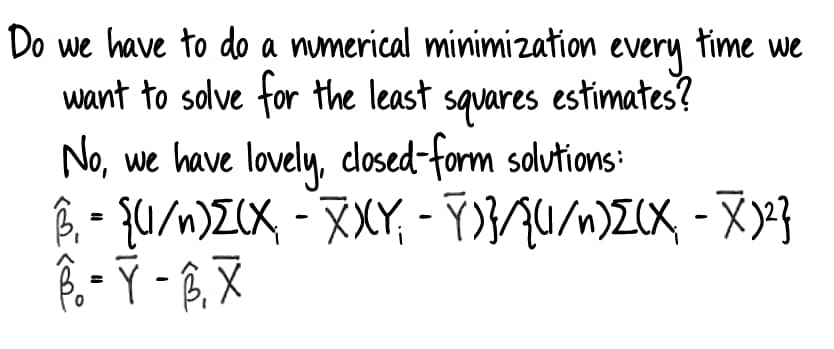 Do we have to do a numerical minimization every time we
want to solve for the least squares estimates?
No, we have lovely, closed-form solutions:
β̂₁ = {(1/n)Σ(Xᵢ - X̅)(Yᵢ - Y̅)}/{(1/n)Σ(Xᵢ - X̅)²}
β̂₀ = Y̅ - β̂₁ X̅